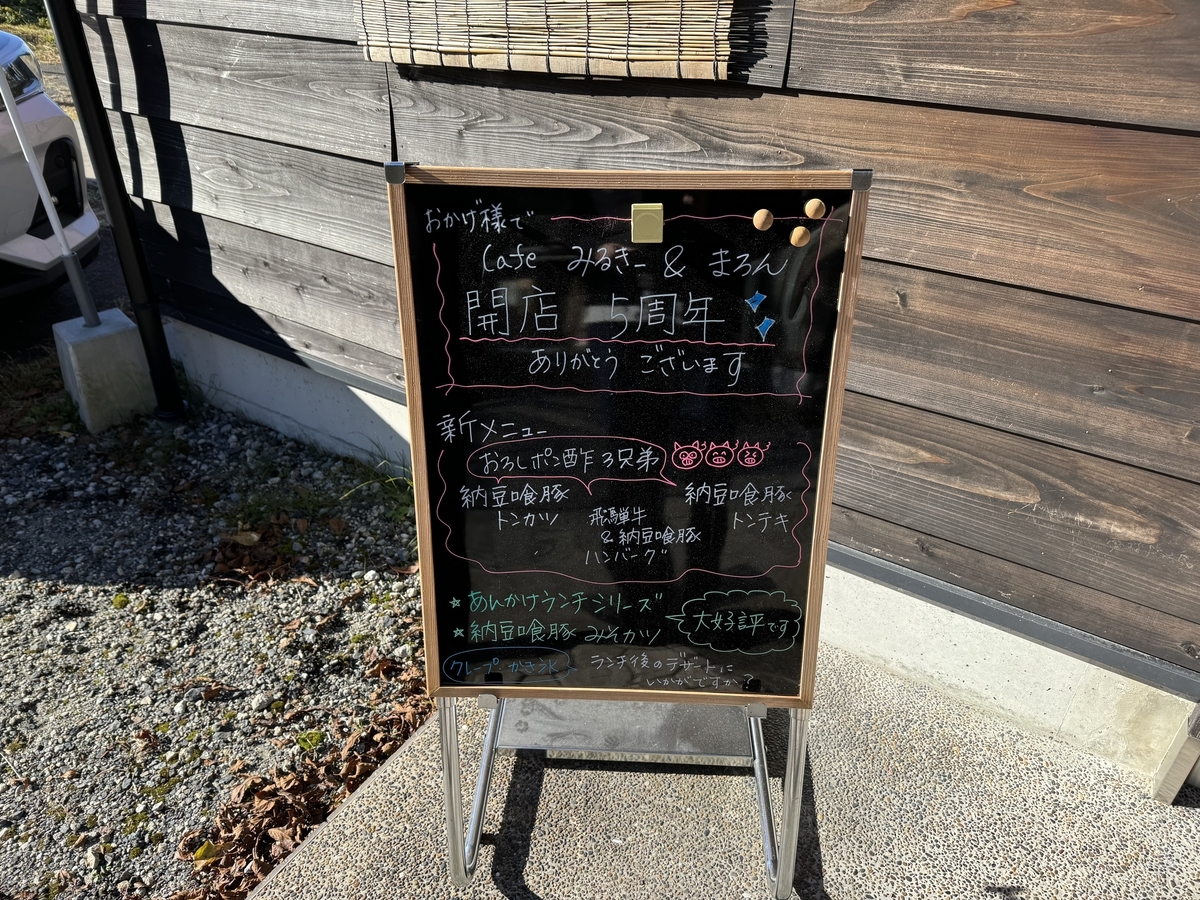 おかげ様で
Cafe みるきー & まろん
開店 5周年
ありがとう ございます
新メニュー
おろしポン酢 3兄弟
納豆喰豚
トンカツ
飛騨牛
& 納豆喰豚
ハンバーグ
納豆喰豚
トンテキ
☆ あんかけランチシリーズ
☆ 納豆喰豚 みそカツ
大好評です
クレープ かき氷
ランチ後のデザートに
いかがですか?